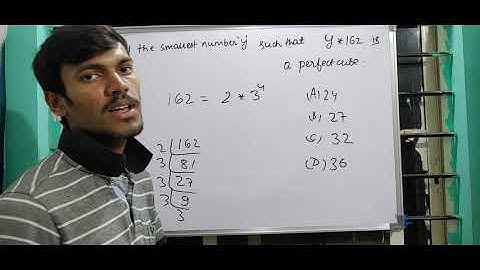 the smallest number 'y' such that y * 162 is
a perfect cube.
162 = 2 * 3⁴
(A) 24
27
(C) 32
(D) 36
2 | 162
3 | 81
3 | 27
3 | 9
3